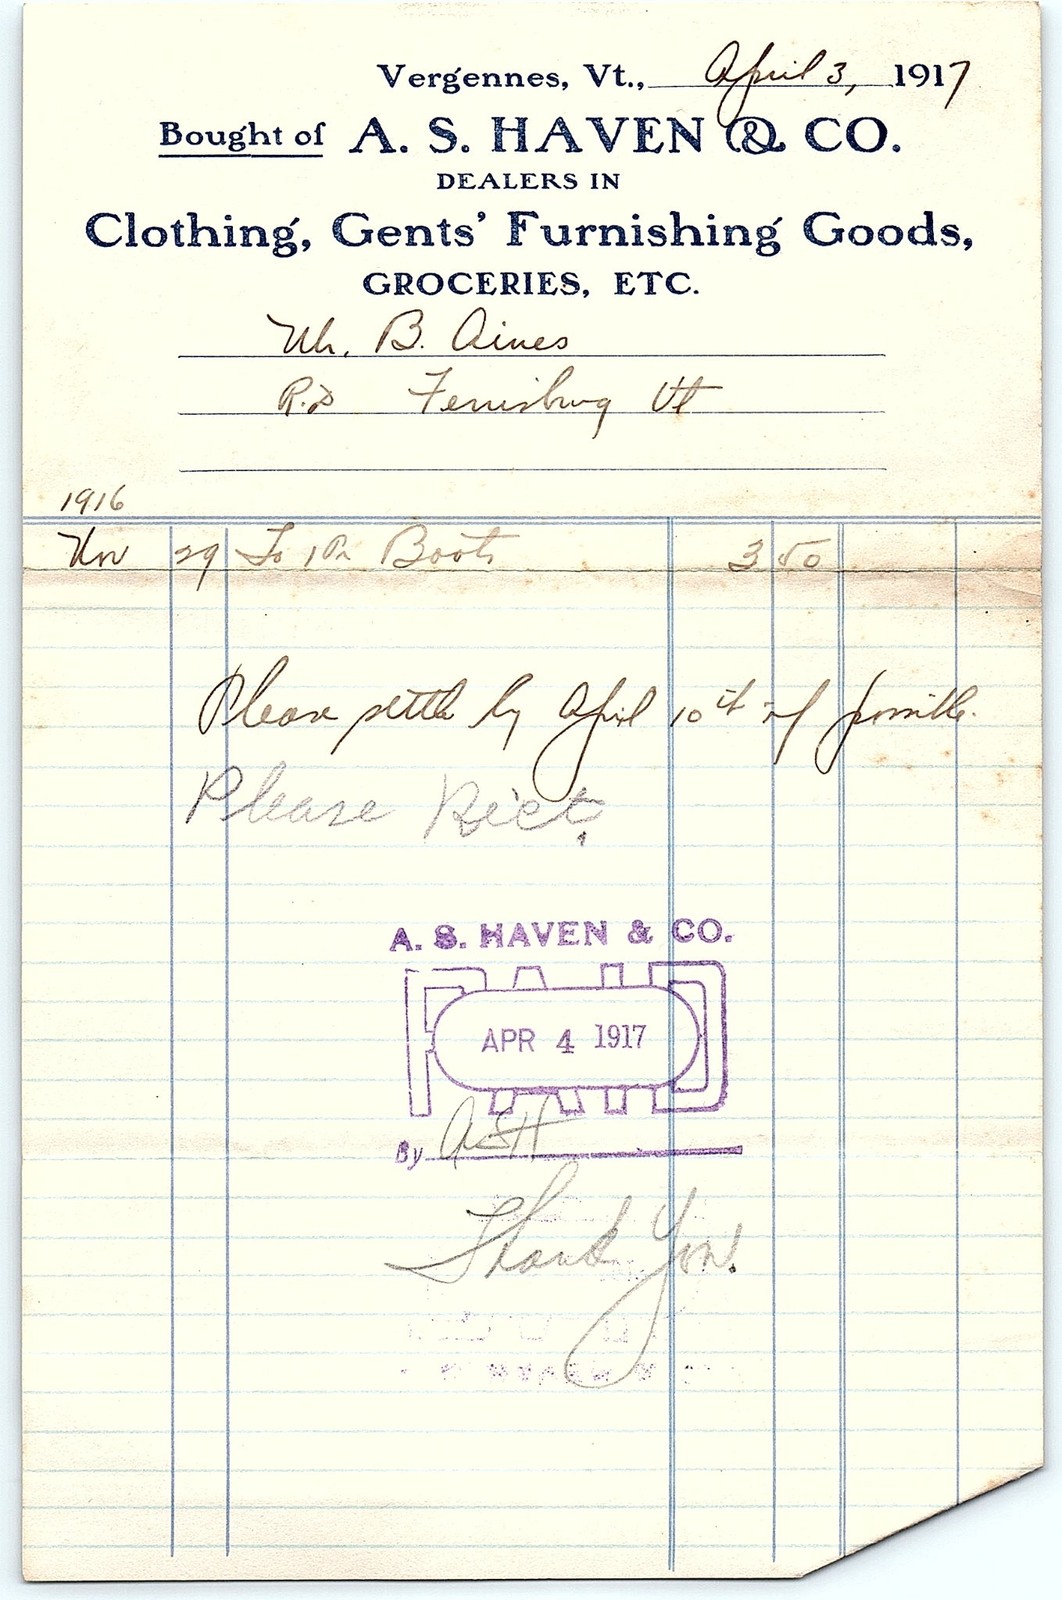 Vergennes, Vt., April 3, 1917
Bought of A. S. HAVEN & CO.
DEALERS IN
Clothing, Gents' Furnishing Goods,
GROCERIES, ETC.
B. Aines
R.D Ferrisburg Vt
1916
Nov 29 To 1 Pr Boots 3 50
Please settle by April 10th if possible.
Please Rec't.
A. S. HAVEN & CO.
APR 4 1917
By ASH
Thank You.